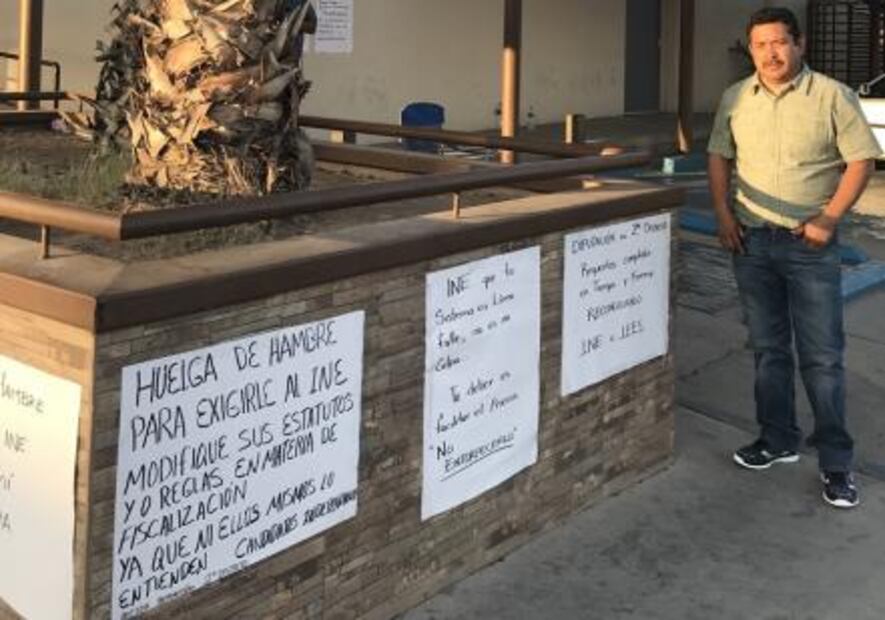 HAMBRE
INE
HUELGA DE HAMBRE
PARA EXIGIRLE AL INE
MODIFIQUE SUS ESTATUTOS
Y O REGLAS EN MATERIA DE
FISCALIZACIÓN
YA QUE NI ELLOS MISMOS LO
ENTIENDEN CANDIDATOS INDEPENDIENTES
INE que tu
Sistema en Linea
falle, no es mi
Culpa.
Tu deber es
facilitar el Proceso
"No
ENTORPECERLO"
DIPUTACIÓN
Requisitos cumplidos
en Tiempo y Forma
INE e IEES